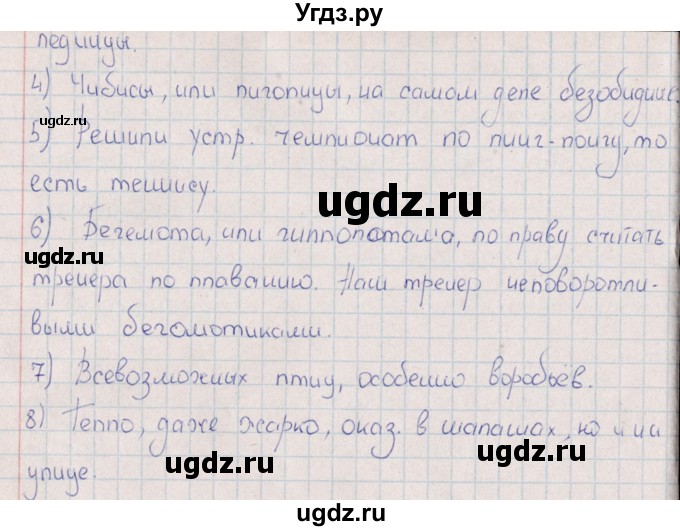 Угдз.ру
педицы.
4) Чибисы, или пиголицы, на самом деле безобидные.
5) Решили устр. чемпионат по пинг-понгу, то
есть теннису.
6) Бегемота, или гиппопотама, по праву считать
тренера по плаванию. Наш тренер неповоротли-
выми бегомотиками.
7) Всевозможных птиц, особенно воробьёв.
8) Тепло, даже жарко, оказ. в шалашах, но и на
улице.
ugdz.ru
ugdz.ru
ugdz.ru
ugdz.ru
ugdz.ru
ugdz.ru
ugdz.ru
ugdz.ru